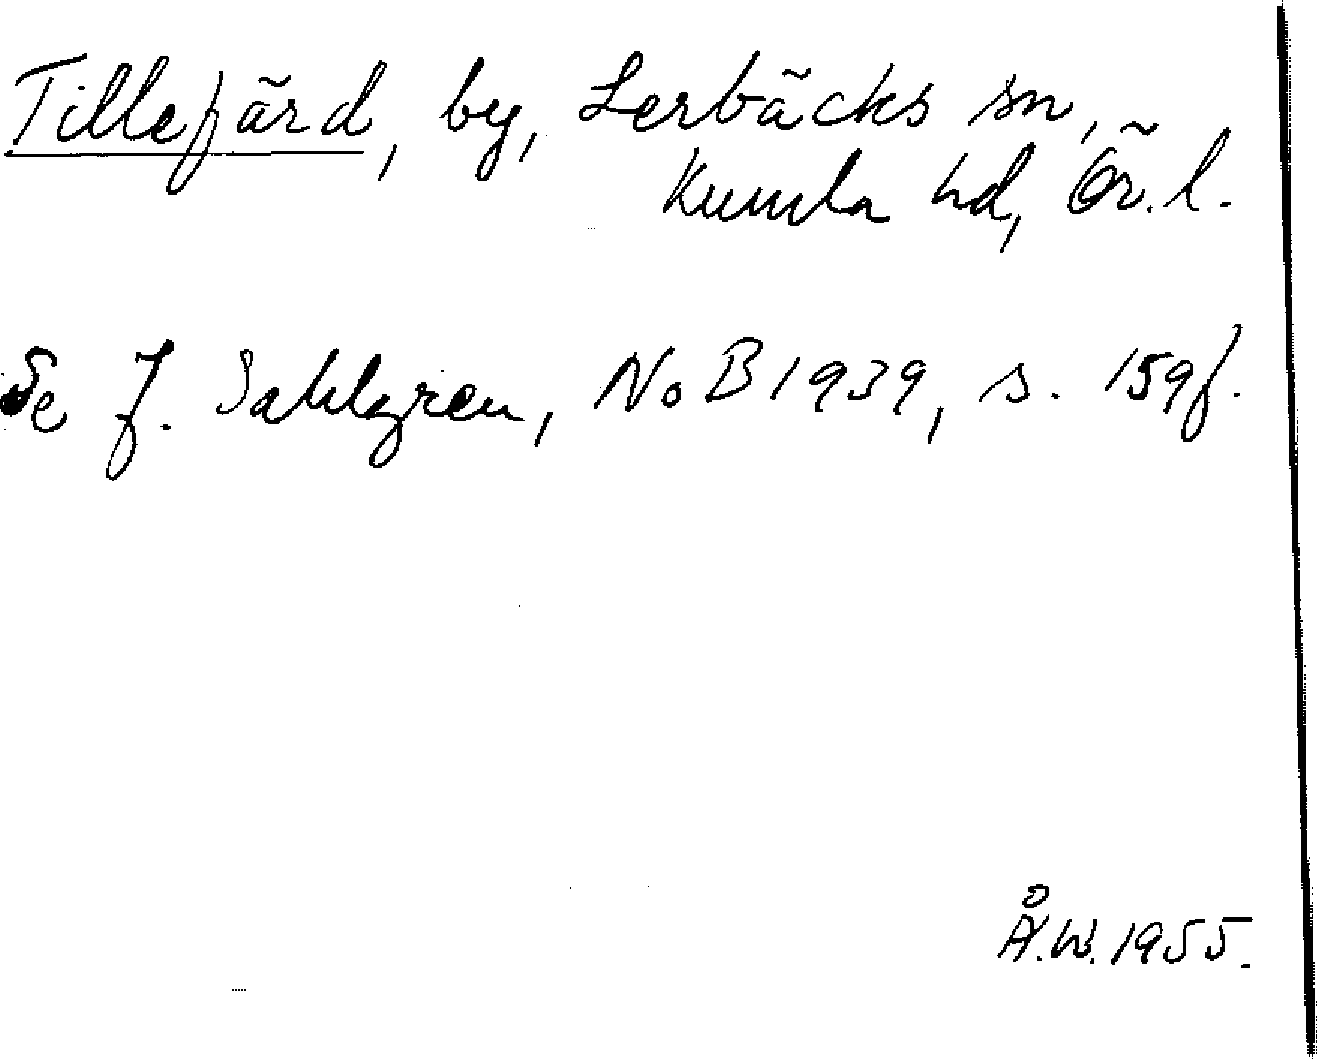 Tillefärd, by, Lerbäcks sn,
Kumla hd, Ör. l.
Se J. Sahlgren, NoB 1939, s. 159 f.
Å.W. 1955.